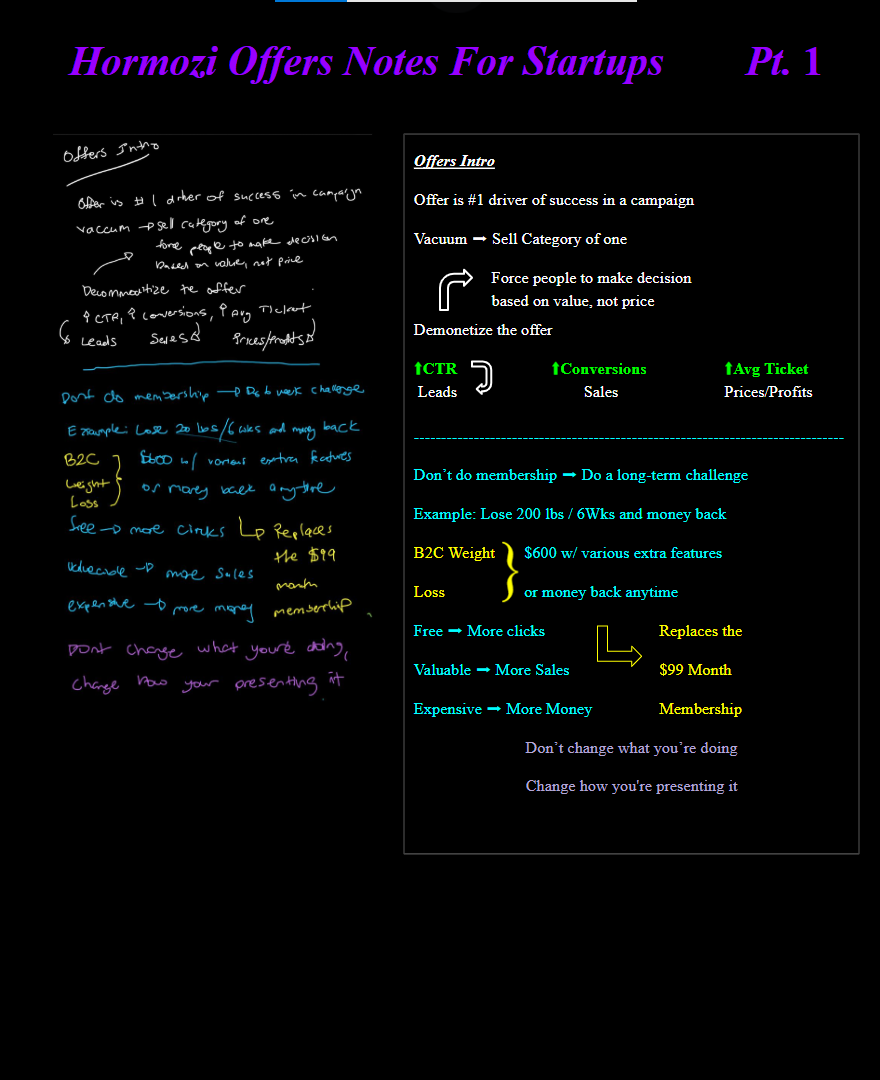 Hormozi Offers Notes For Startups Pt. 1
Offers Intro
Offer is #1 driver of success in campaign
Vaccum → sell category of one
force people to make decision
based on value, not price
Decommoditize the offer
↑ CTR, ↑ conversions, ↑ Avg Ticket
Leads Sales Prices/Profits
Dont do membership → Do 6 week challenge
Example: Lose 20 lbs/6 wks and money back
B2C $600 w/ various extra features
Weight or money back anytime
Loss
free → more clicks Replaces
the $99
valuable → more sales
month
expensive → more money membership
Dont change what you're doing,
change how your presenting it
Offers Intro
Offer is #1 driver of success in a campaign
Vacuum → Sell Category of one
Force people to make decision
based on value, not price
Demonetize the offer
↑CTR ↑Conversions ↑Avg Ticket
Leads Sales Prices/Profits
Don’t do membership → Do a long-term challenge
Example: Lose 200 lbs / 6Wks and money back
B2C Weight $600 w/ various extra features
Loss or money back anytime
Free → More clicks Replaces the
Valuable → More Sales $99 Month
Expensive → More Money Membership
Don’t change what you’re doing
Change how you're presenting it